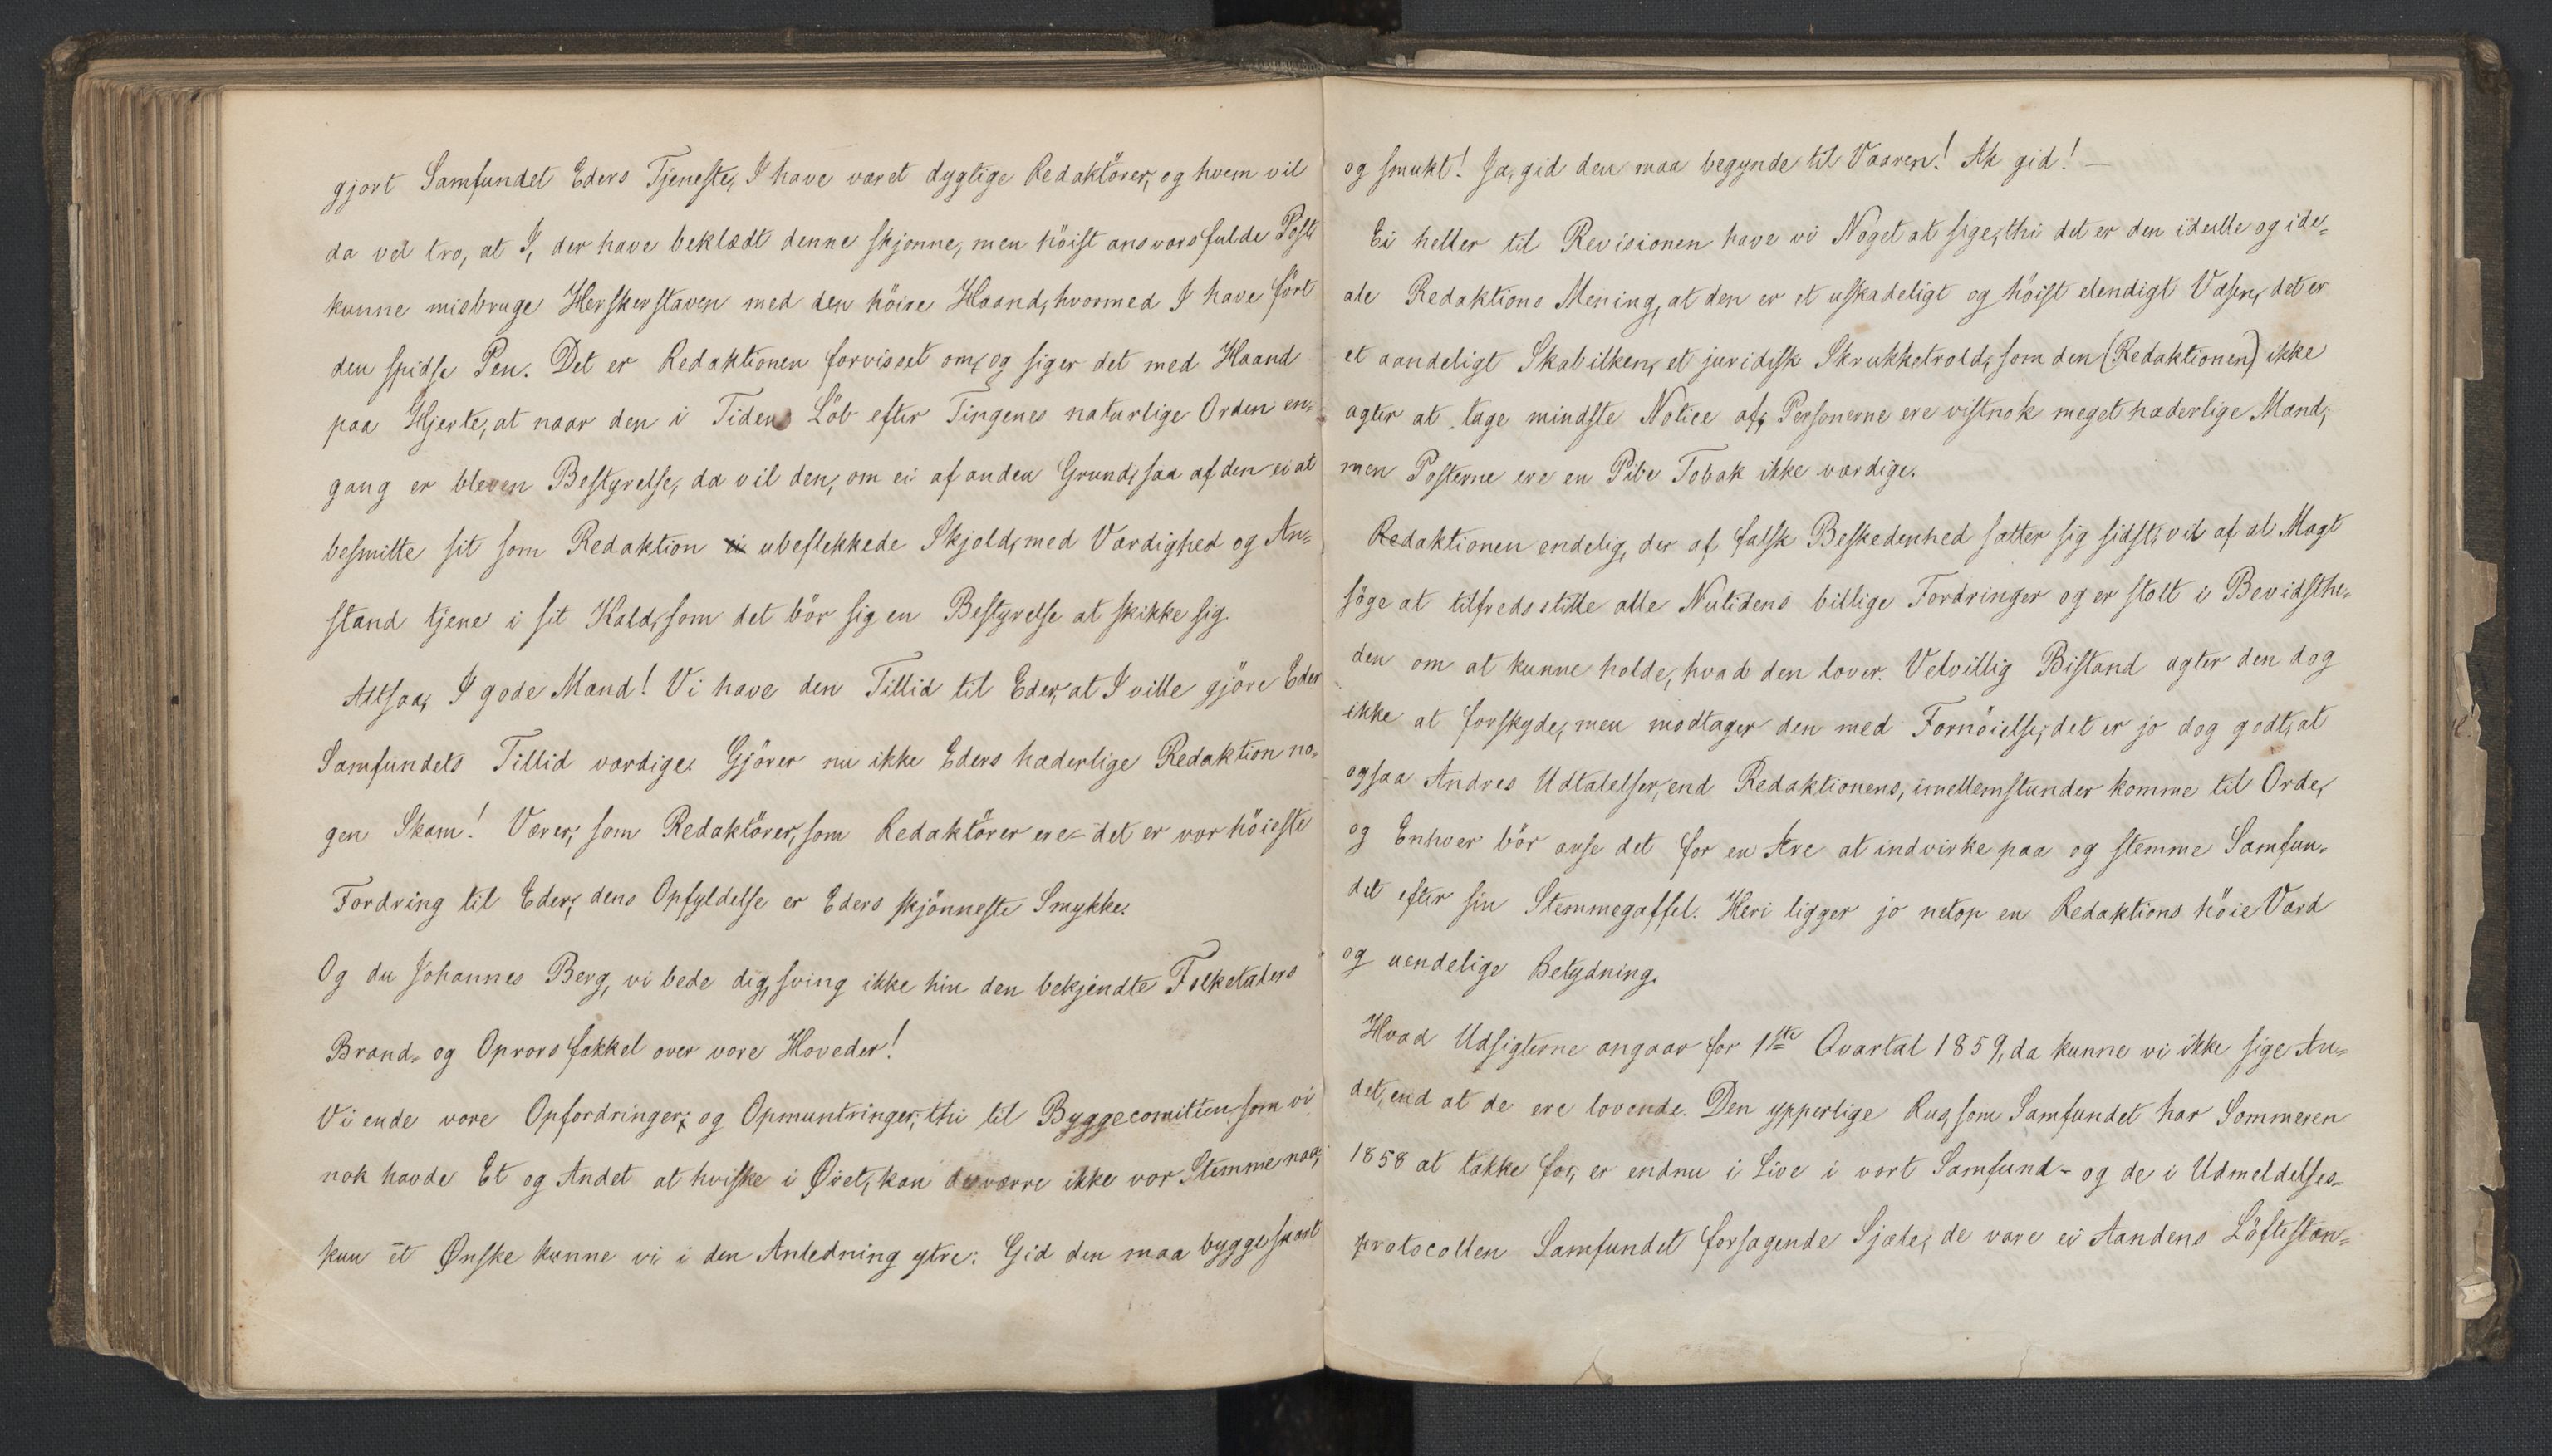 gjort Samfundet Eders Tjeneste, I have været dygtige Redaktörer, og hvem vil
da vel tro, at I, der have beklædt denne skjønne, men höist ansvarsfulde Post,
kunne misbruge Herskerstaven med den höire Haand, hvormed I have fört
den spidse Pen. Det er Redaktionen forvisset om, og siger det med Haand
paa Hjerte, at naar den i Tidens Löb efter Tingenes naturlige Orden en-
gang er bleven Bestyrelse, da vil den, om ei af anden Grund, saa af den ei at
besmitte sit som Redaktion ubeflekkede Skjold, med Værdighed og An-
stand tjene i sit Kald, som det bör sig en Bestyrelse at skikke sig.
Altsaa, I gode Mænd! Vi have den Tillid til Eder, at I ville gjöre Eder
Samfundets Tillid værdige. Gjörer nu ikke Eders hæderlige Redaktion no-
gen Skam! Værer, som Redaktörer, som Redaktörer ere – det er vor höieste
Fordring til Eder, dens Opfyldelse er Eders skjönneste Smykke.
Og du Johannes Berg, vi bede dig, sving ikke hin den bekjendte Folketalers
Brand- og Oprørsfakkel over vore Hoveder!
Vi ende vore Opfordringer og Opmuntringer, thi til Byggecomitteen som vi
nok havde Et og Andet at hviske i Øret, kan desværre ikke vor Stemme naa;
kun ét Ønske kunne vi i den Anledning ytre: Gid den maa bygge snart
og smukt! Ja, gid den maa begynde til Vaaren! Ak gid! —
Ei heller til Revisionen have vi Noget at sige, thi det er den ideelle og ide-
ale Redaktions Mening, at den er et uskadeligt og höist elendigt Væsen, det er
et aandeligt Skabilken, et juridisk Skrukketrold, som den (Redaktionen) ikke
agter at tage mindste Notice af; Personerne ere vistnok meget hæderlige Mænd;
men Posterne ere en Pibe Tobak ikke værdige.
Redaktionen endelig, der af falsk Beskedenhed sætter sig sidst, vil af al Magt
söge at tilfredsstille alle Nutidens billige Fordringer og er stolt i Bevidsthe-
den om at kunne holde, hvad den lover. Velvillig Bistand agter den dog
ikke at forskyde, men modtager den med Fornöielse, det er jo dog godt, at
ogsaa Andres Udtalelser, end Redaktionens, imellemstunder komme til Orde,
og Enhver bör anse det for en Ære at indvirke paa og stemme Samfun-
det efter sin Stemmegaffel. Heri ligger jo netop en Redaktions höie Værd
og uendelige Betydning.
Hvad Udsigterne angaar for 1ste Qvartal 1859, da kunne vi ikke sige An-
det, end at de ere lovende. Den ypperlige Rus, som Samfundet har Sommeren
1858 at takke for, er endnu i Live i vort Samfund – og de i Udmeldelses-
protocollen Samfundet forsagende Sjæle, de vare ei Aandens Löftestæn-